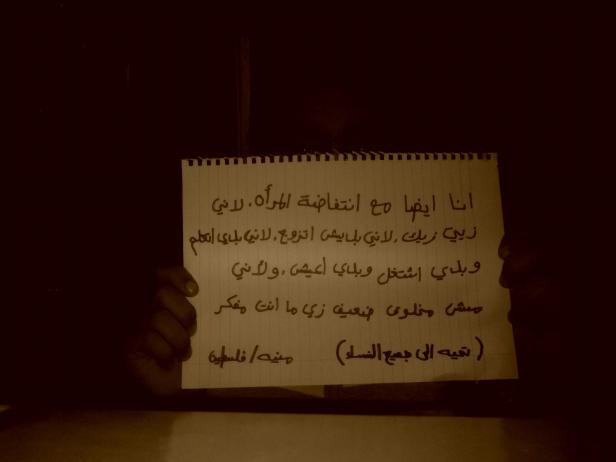 انا ايضا مع انتفاضة المرأة، لاني
زيي زيك، لاني بلديش اتزوج، لاني بدي اتكلم
وبدي اشتغل وبدي أعيش، ولأني
مش مخلوق ضعيف زي ما انت مفكر
(تحيه الى جميع النساء) منيه/فلسطين